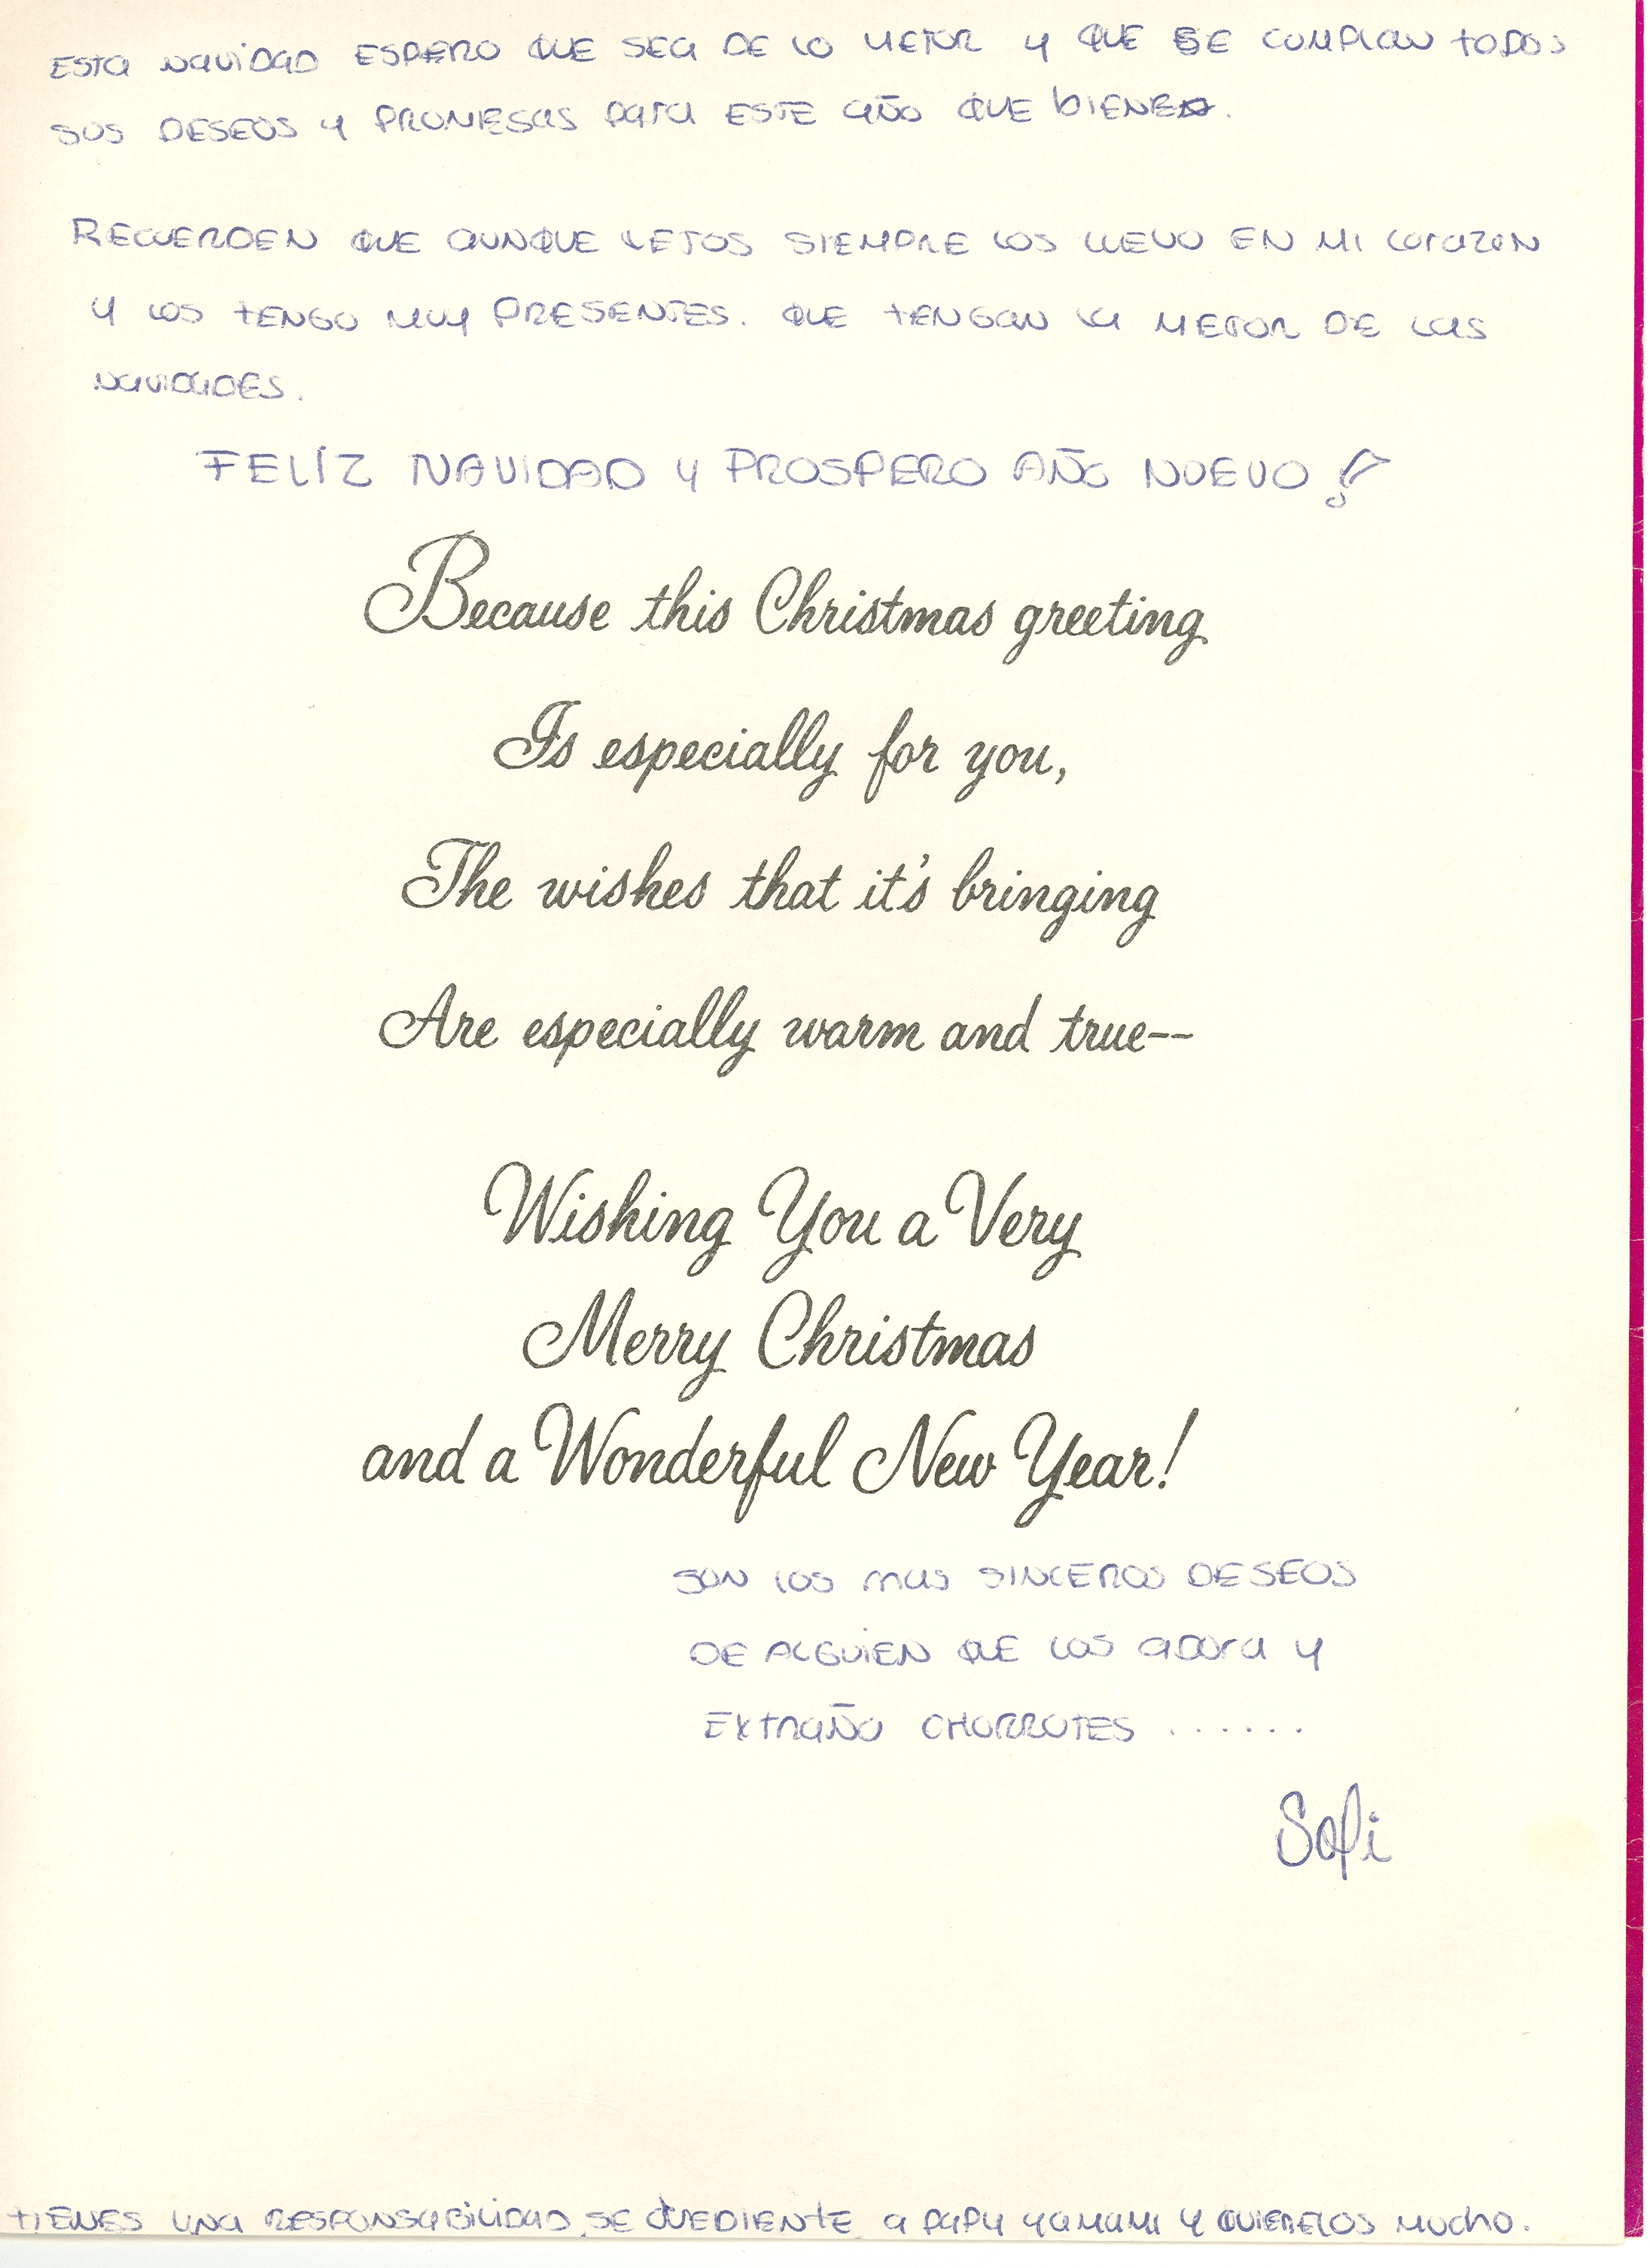 ESTA NAVIDAD ESPERO QUE SEA DE LO MEJOR Y QUE SE CUMPLAN TODOS
SUS DESEOS Y PROMESAS PARA ESTE AÑO QUE BIENE.
RECUERDEN QUE AUNQUE LEJOS SIEMPRE LOS LLEVO EN MI CORAZON
Y LOS TENGO MUY PRESENTES. QUE TENGAN LA MEJOR DE LAS
NAVIDADES.
FELÍZ NAVIDAD Y PROSPERO AÑO NUEVO!
Because this Christmas greeting
Is especially for you,
The wishes that it's bringing
Are especially warm and true--
Wishing You a Very
Merry Christmas
and a Wonderful New Year!
SON LOS MAS SINCEROS DESEOS
DE ALGUIEN QUE LOS ADORA Y
EXTRAÑO CHORROTES ......
Sofi
TIENES UNA RESPONSABILIDAD, SE OVEDIENTE A PAPY Y A MAMI Y QUIERELOS MUCHO.